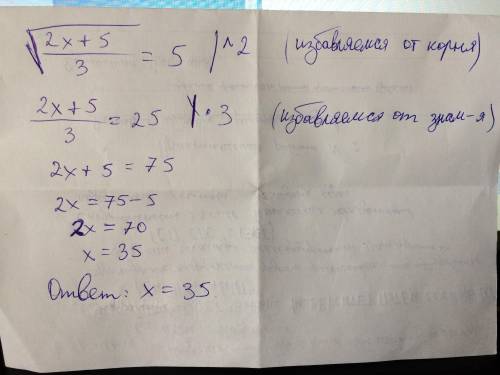 √((2x + 5)/3) = 5 |^2 (избавляемся от корня)
(2x + 5)/3 = 25 | · 3 (избавляемся от знам-я)
2x + 5 = 75
2x = 75 - 5
2x = 70
x = 35
Ответ: x = 35.